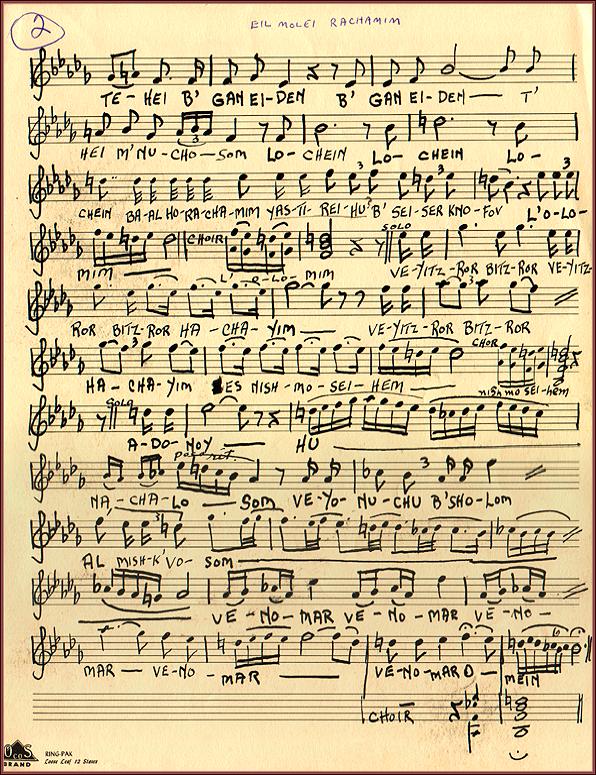 2
EIL MOLEI RACHAMIM
TE-HEI B' GAN EI-DEN B' GAN EI-DEN — T'
3
HEI M'NU-CHO-SOM LO-CHEIN LO-CHEIN LO-
3 3 3
CHEIN BA-AL HO-RA-CHA-MIM YAS-TI-REI-HU B' SEI-SER KNO-FOV L'O-LO-
CHOIR SOLO
MIM — L'O-LO-MIM VE-YITZ-ROR BITZ-ROR VE-YITZ-
3
ROR BITZ-ROR HA-CHA-YIM — VE-YITZ-ROR BITZ-ROR
3 CHOR
HA-CHA-YIM ES NISH-MO-SEI-HEM — nishmo sei-hem
SOLO
A-DO-NOY — HU
poco rit 3
NA-CHA-LO — SOM VE-YO-NU-CHU B'SHO-LOM
3
AL MISH-K'VO-SOM
VE-NO-MAR VE-NO-MAR VE-NO-
6
MAR — VE-NO-MAR — VE-NO-MAR O — MEIN
CHOIR
BRAND
RING-PAK
Loose Leaf 12 Staves